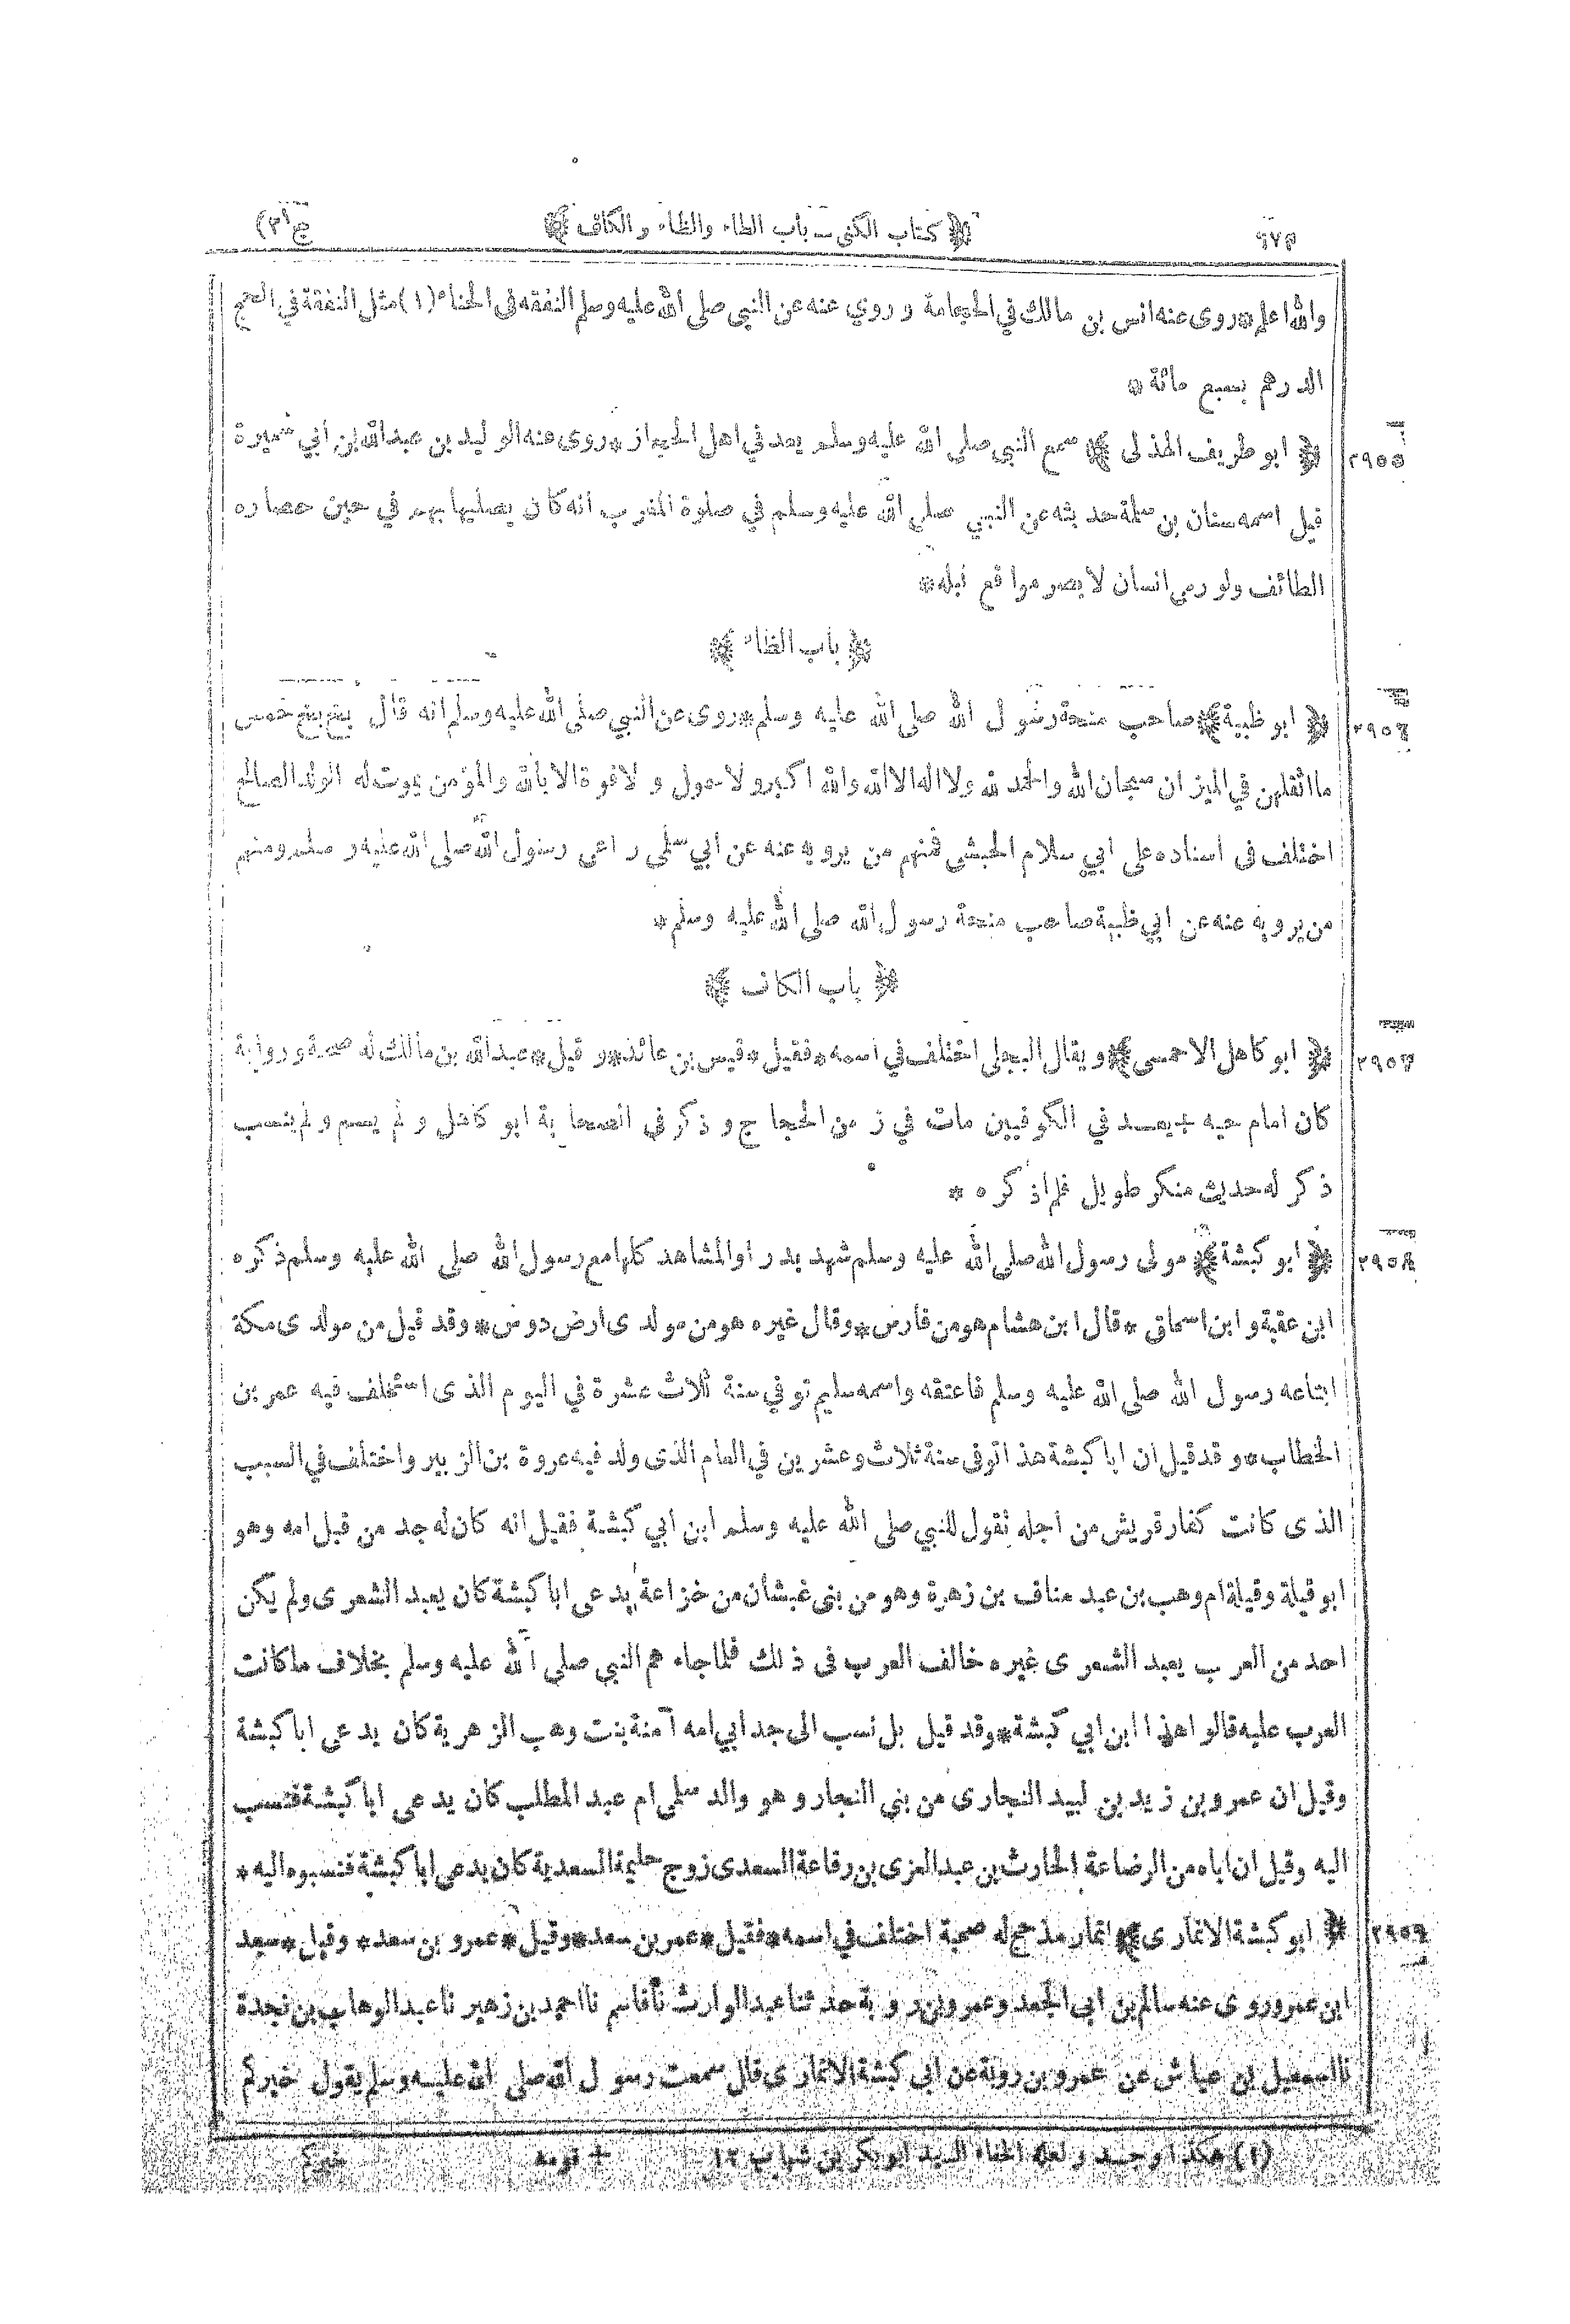 ٦٧٣ ﴿ كتاب الكنى — باب الطاء والظاء والكاف ﴾ ج (٢)
والله اعلم*روى عنه انس بن مالك في الحجامة و روي عنه عن النبي صلى الله عليه وسلم النفقه في الحناء (١) مثل النفقة في الحج
الدرهم بسبع مائة *
٢٩٥٥ ﴿ ابو طريف الهذلى ﴾ سمع النبي صلى الله عليه وسلم يعد في اهل الحجاز *روى عنه الوليد بن عبدالله بن أبي شميرة
قيل اسمه سنان بن سلمة حديثه عن النبي صلى الله عليه وسلم في صلوة المغرب انه كان يصليها بهم في حين حصاره
الطائف ولو رمى انسان لا بصر مواقع نبله*
﴿ باب الظاء ﴾
٢٩٥٦ ﴿ ابو ظبية ﴾ صاحب منحة رسول الله صلى الله عليه وسلم*روى عن النبي صلى الله عليه وسلم انه قال بخ بخ خمس
ما اثقلهن في الميزان سبحان الله والحمد لله ولا اله الا الله والله اكبر ولا حول و لا قوة الا بالله والمؤمن يموت له الولد الصالح
اختلف فى اسناده على ابي سلام الحبشى فمنهم من يرويه عنه عن ابي سلمى راعى رسول الله صلى الله عليه و سلم ومنهم
من يرويه عنه عن ابي ظبية صاحب منحة رسول الله صلى الله عليه وسلم*
﴿ باب الكاف ﴾
٢٩٥٧ ﴿ ابو كاهل الاحمسى ﴾ ويقال البجلى اختلف في اسمه*فقيل*قيس بن عائذ*و قيل*عبدالله بن مالك له صحبة و رواية
كان امام حيه + يعد في الكوفيين مات في زمن الحجاج و ذكر فى الصحابة ابو كاهل و لم يسم و لم ينسب
ذكر له حديث منكر طويل فلم اذكره *
٢٩٥٨ ﴿ ابو كبشة ﴾ مولى رسول الله صلى الله عليه وسلم شهد بدرا والمشاهد كلها مع رسول الله صلى الله عليه وسلم ذكره
ابن عقبة و ابن اسحاق *قال ابن هشام هو من فارس*وقال غيره هو من مولدى ارض دوس*وقد قيل من مولدى مكة
ابتاعه رسول الله صلى الله عليه وسلم فاعتقه واسمه سليم توفي سنة ثلاث عشرة في اليوم الذى استخلف فيه عمر بن
الخطاب*وقد قيل ان ابا كبشة هذا توفى سنة ثلاث وعشرين في العام الذى ولد فيه عروة بن الزبير واختلف في السبب
الذى كانت كفار قريش من اجله تقول للنبي صلى الله عليه وسلم ابن ابي كبشة فقيل انه كان له جد من قبل امه وهو
ابو قيلة وقيلة ام وهب بن عبد مناف بن زهرة وهو من بنى غبشان من خزاعة يدعى ابا كبشة كان يعبد الشعرى ولم يكن
احد من العرب يعبد الشعرى غيره خالف العرب فى ذلك فلما جاء هم النبي صلى الله عليه وسلم بخلاف ما كانت
العرب عليه قالوا هذا ابن ابي كبشة*وقد قيل بل نسب الى جد ابي امه آمنة بنت وهب الزهرية كان يدعى ابا كبشة
وقيل ان عمرو بن زيد بن لبيد النجارى من بني النجار و هو والد سلمى ام عبد المطلب كان يدعى ابا كبشة فنسب
اليه وقيل ان اباه من الرضاعة الحارث بن عبد العزى بن رفاعة السعدى زوج حليمة السعدية كان يدعى ابا كبشة فنسبوه اليه *
٢٩٥٩ ﴿ ابو كبشة الانمارى ﴾ انمار مذحج له صحبة اختلف في اسمه*فقيل*عمر بن سعد*وقيل*عمرو بن سعد* وقيل*سعد
ابن عمرو روى عنه سالم بن ابي الجعد وعمرو بن روبة حدثنا عبد الوارث نا قاسم نا احمد بن زهير نا عبد الوهاب بن نجدة
نا اسمعيل بن عياش عن عمرو بن روبة عن ابى كبشة الانمارى قال سمعت رسول الله صلى الله عليه وسلم يقول خيركم
(١) هكذا وجد و لعله الحناء السيد ابو بكر بن شهاب ١٢ + قومه خيركم